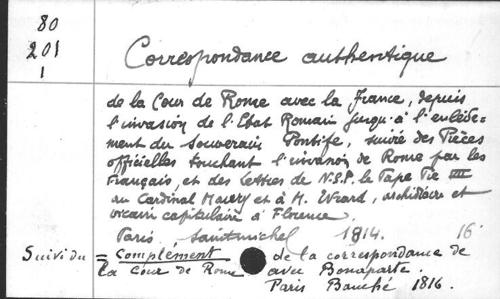 80
201
1
Correspondance authentique
de la Cour de Rome avec la France, depuis
l'invasion de l'Etat Romain jusqu'à l'enlève-
ment du Souverain Pontife, suivie des Pièces
officielles touchant l'invasion de Rome par les
Français, et des Lettres de N.S.P. le Pape Pie VII
au Cardinal Maury et à M. Evrard, archidiacre et
vicaire capitulaire à Florence.
Paris, Saint-michel 1814. 16°
Suivi du = Complément de la correspondance de
la Cour de Rome avec Bonaparte.
Paris 1816.